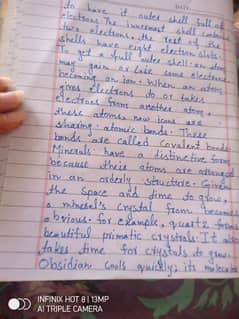 to have it outer shell full of
electrons. The innermost shell contains
two electrons, the rest of the
shells have eight electron slots.
To get a full outer shell: an
may gain or lose some electrons
becoming an ion. When an atom
gives electrons do or takes
electrons from another atom,
these atoms, now ions are
sharing: atomic bonds. These
bonds are called Covalent bonds
Minerals have a distinctive form
because their atoms are arranged
in an orderly structure. Given
the space and time to grow,
a mineral's crystal from becomes
obvious. for example, quartz forms
beautiful primatic crystals. It also
takes time for crystals to grow.
Obsidian cools quickly, its molecules
INFINIX HOT 8 | 13MP
AI TRIPLE CAMERA